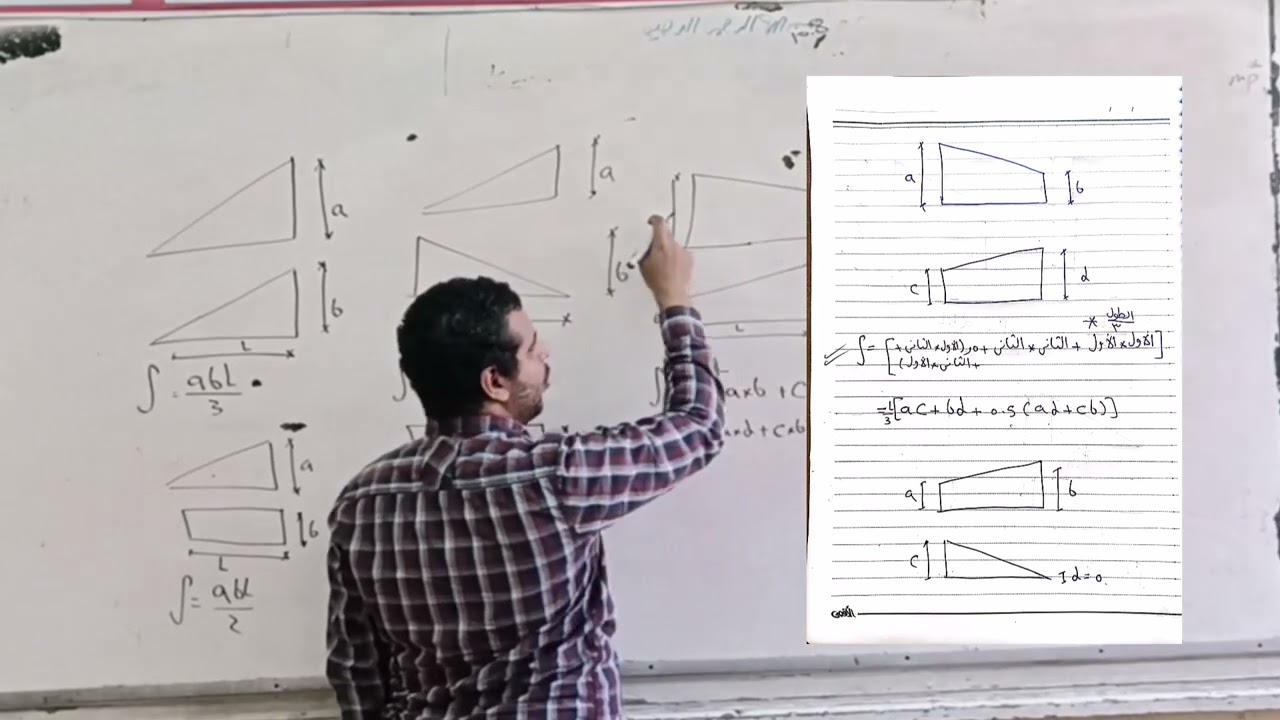 a
b
L
∫ = abL/3
a
b
L
∫ = abL/2
a
b
L
axb + c
xd + cxb
a
b
c
d
* الطول/٣
∫ = [الأول * الأول + الثاني * الثاني + ٠.٥ (الأول * الثاني +
+ الثاني * الأول)]
= 1/3 [ac + bd + 0.5 (ad + cb)]
a
b
c
d = 0.